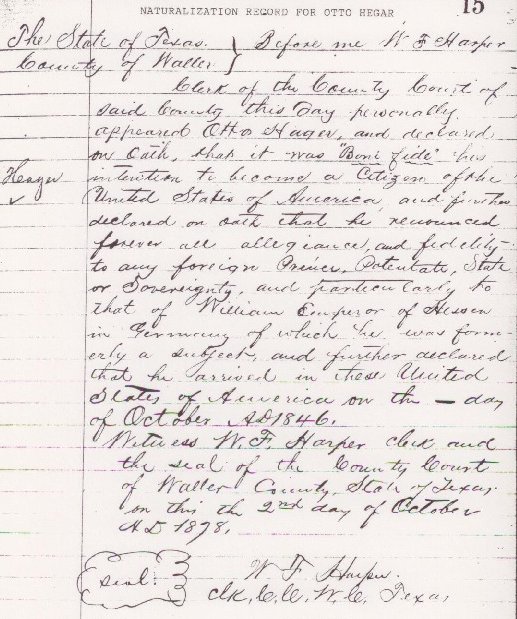 NATURALIZATION RECORD FOR OTTO HEGAR 15
The State of Texas. } Before me W F Harper
County of Waller }
Clerk of the County Court of
said County this day personally
appeared Otto Hager, and declared
on oath, that it was "Boni fide" his
Heager intention to become a Citizen of the
United States of America, and further
declared on oath that he renounced
forever all allegiance, and fidelity
to any foreign Prince, Potentate, State
or Sovereignty, and particularly to
that of William Emperor of Hessen
in Germany of which he was form-
erly a subject, and further declared
that he arrived in these United
States of America on the — day
of October AD 1846.
Witness W. F. Harper clerk and
the seal of the County Court
of Waller County, State of Texas.
on this the 2nd day of October
AD 1878.
seal. W F Harper.
Clk, C. C. W. C, Texas,